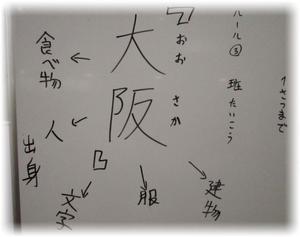 1さつまで
ルール③ 班たいこう
おおさか
大阪
食べ物
人
出身
文字
服
建物